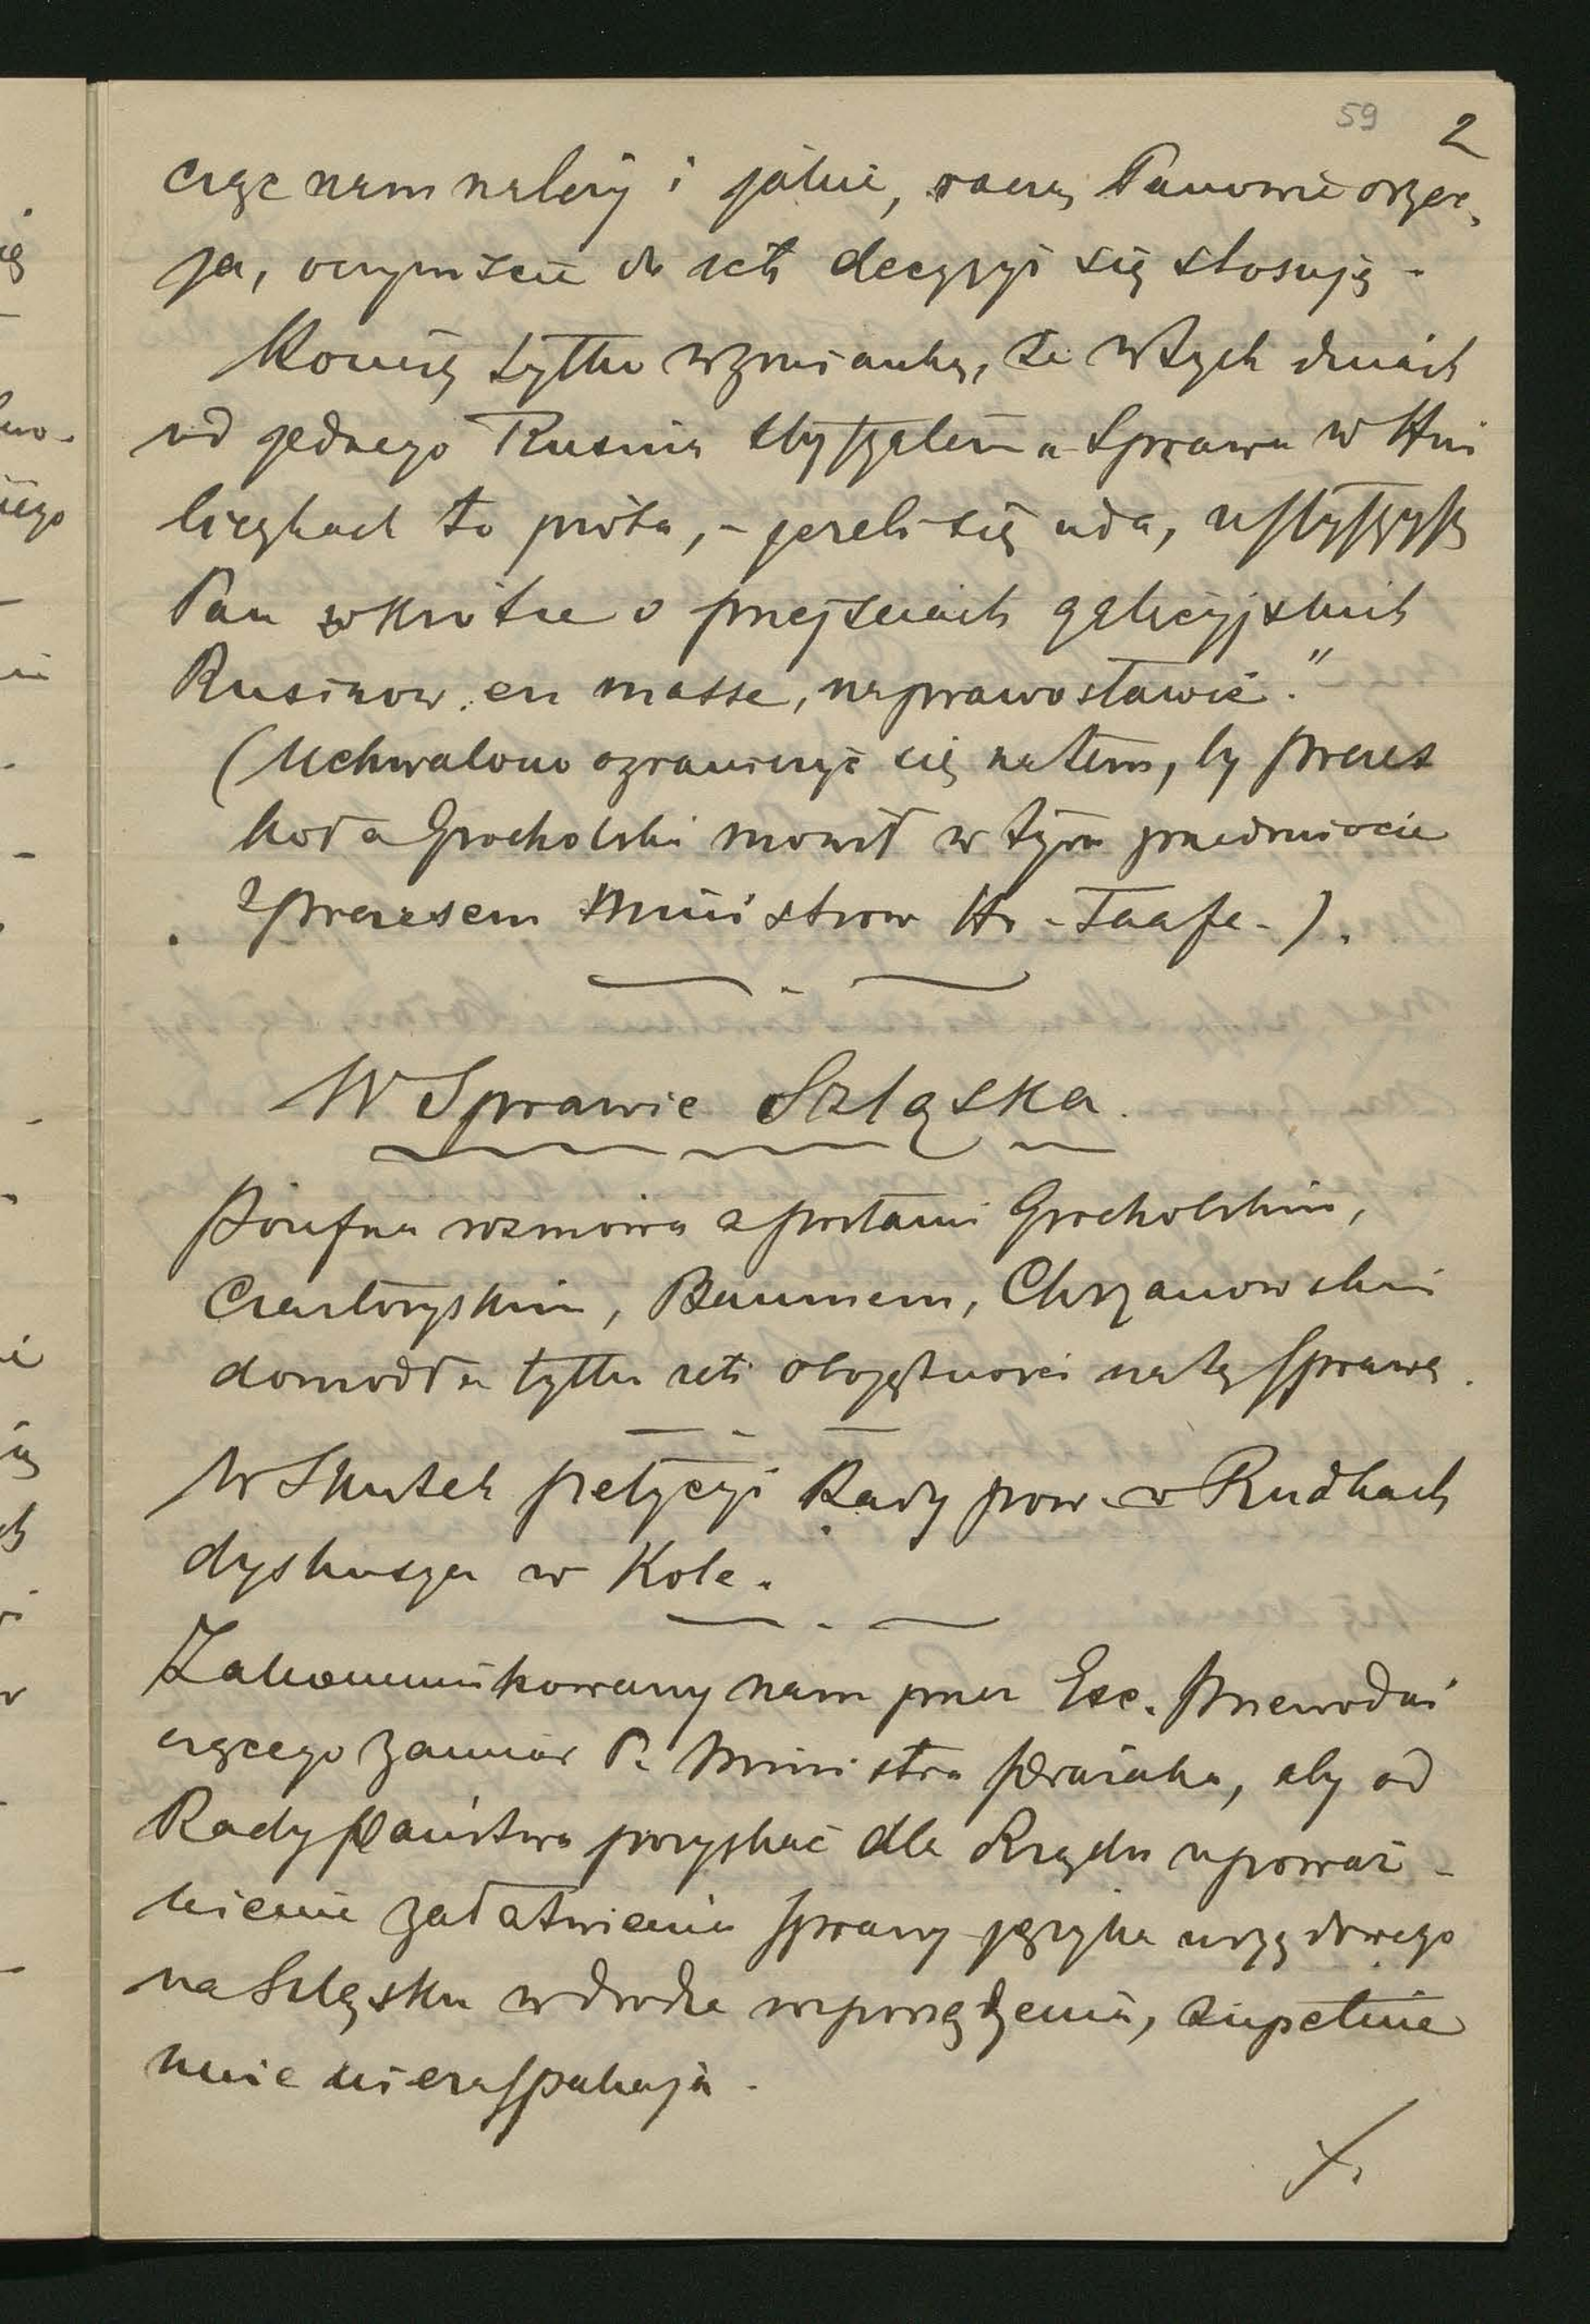 59 2
cząc nam należy i jakie, raczą Panowie orzec,
ja, oczywiście do ich decyzyi się stosuję -
Kończę tylko wzmianką, że w tych dniach
od jednego Rusina słyszałem „Sprawa w Hni
liczkach to próba, - jeżeli się uda, usłyszysz
Pan wkrótce o przejściach galicyjskich
Rusinow, en masse, na prawosławie."
(Uchwalono ograniczyć się na tem, by prezes
koła Grocholski mowił w tym przedmiocie
z prezesem Ministrow Hr - Taafe -).
W Sprawie Szląska.
Poufna rozmowa z posłami Grocholskim,
Czartoryskim, Baumem, Chrzanowskim
dowodzi tylko ich obojętności na tę sprawę.
W Skutek petycyi Rady pow. w Rudkach
dyskusya w Kole.
Zakommunikowany nam przez Exc. Przewodni
czącego zamiar P. Ministra Pražaka, aby od
Rady Państwa pozyskać dla Rządu upoważ-
nienie załatwienia sprawy języka urzędowego
na Szląsku w drodze rozporządzenia, zupełnie
mnie nie zaspakaja -